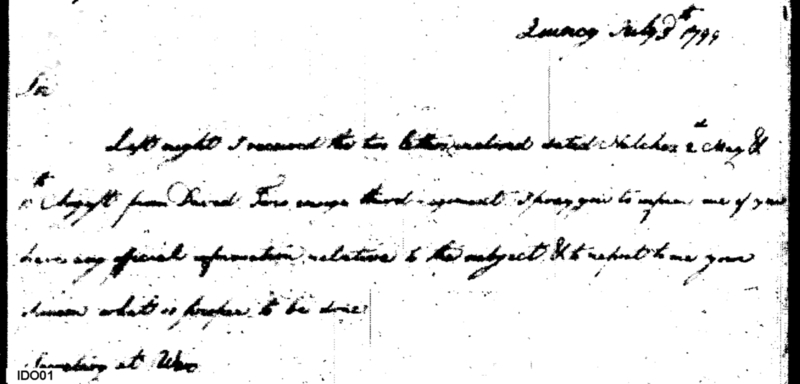 Quincy July 3th 1799
Sir
Last night I received the two letters inclosed dated Natchez 2d May &
from David ensign third regiment I pray you to inform me if you
have any official information relative to the subject & to report to me your
opinion what is proper to be done
Secretary at War
IDO01